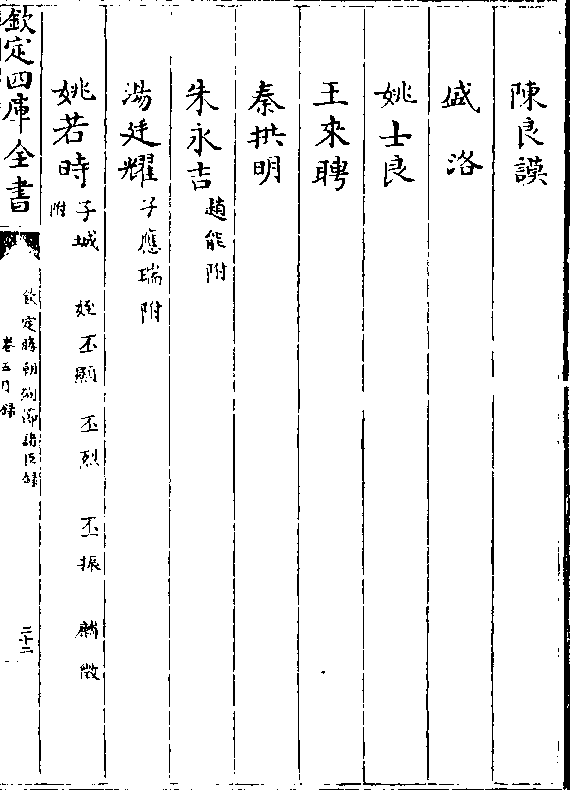 陳良謨
盛洛
姚士良
王來聘
秦拱明
朱永吉 趙能附
湯廷耀 子應瑞附
姚若時 子城 姪丕顯 丕烈 丕振 麟徵 附
欽定四庫全書
欽定勝朝殉節諸臣錄
卷五目錄
二十二